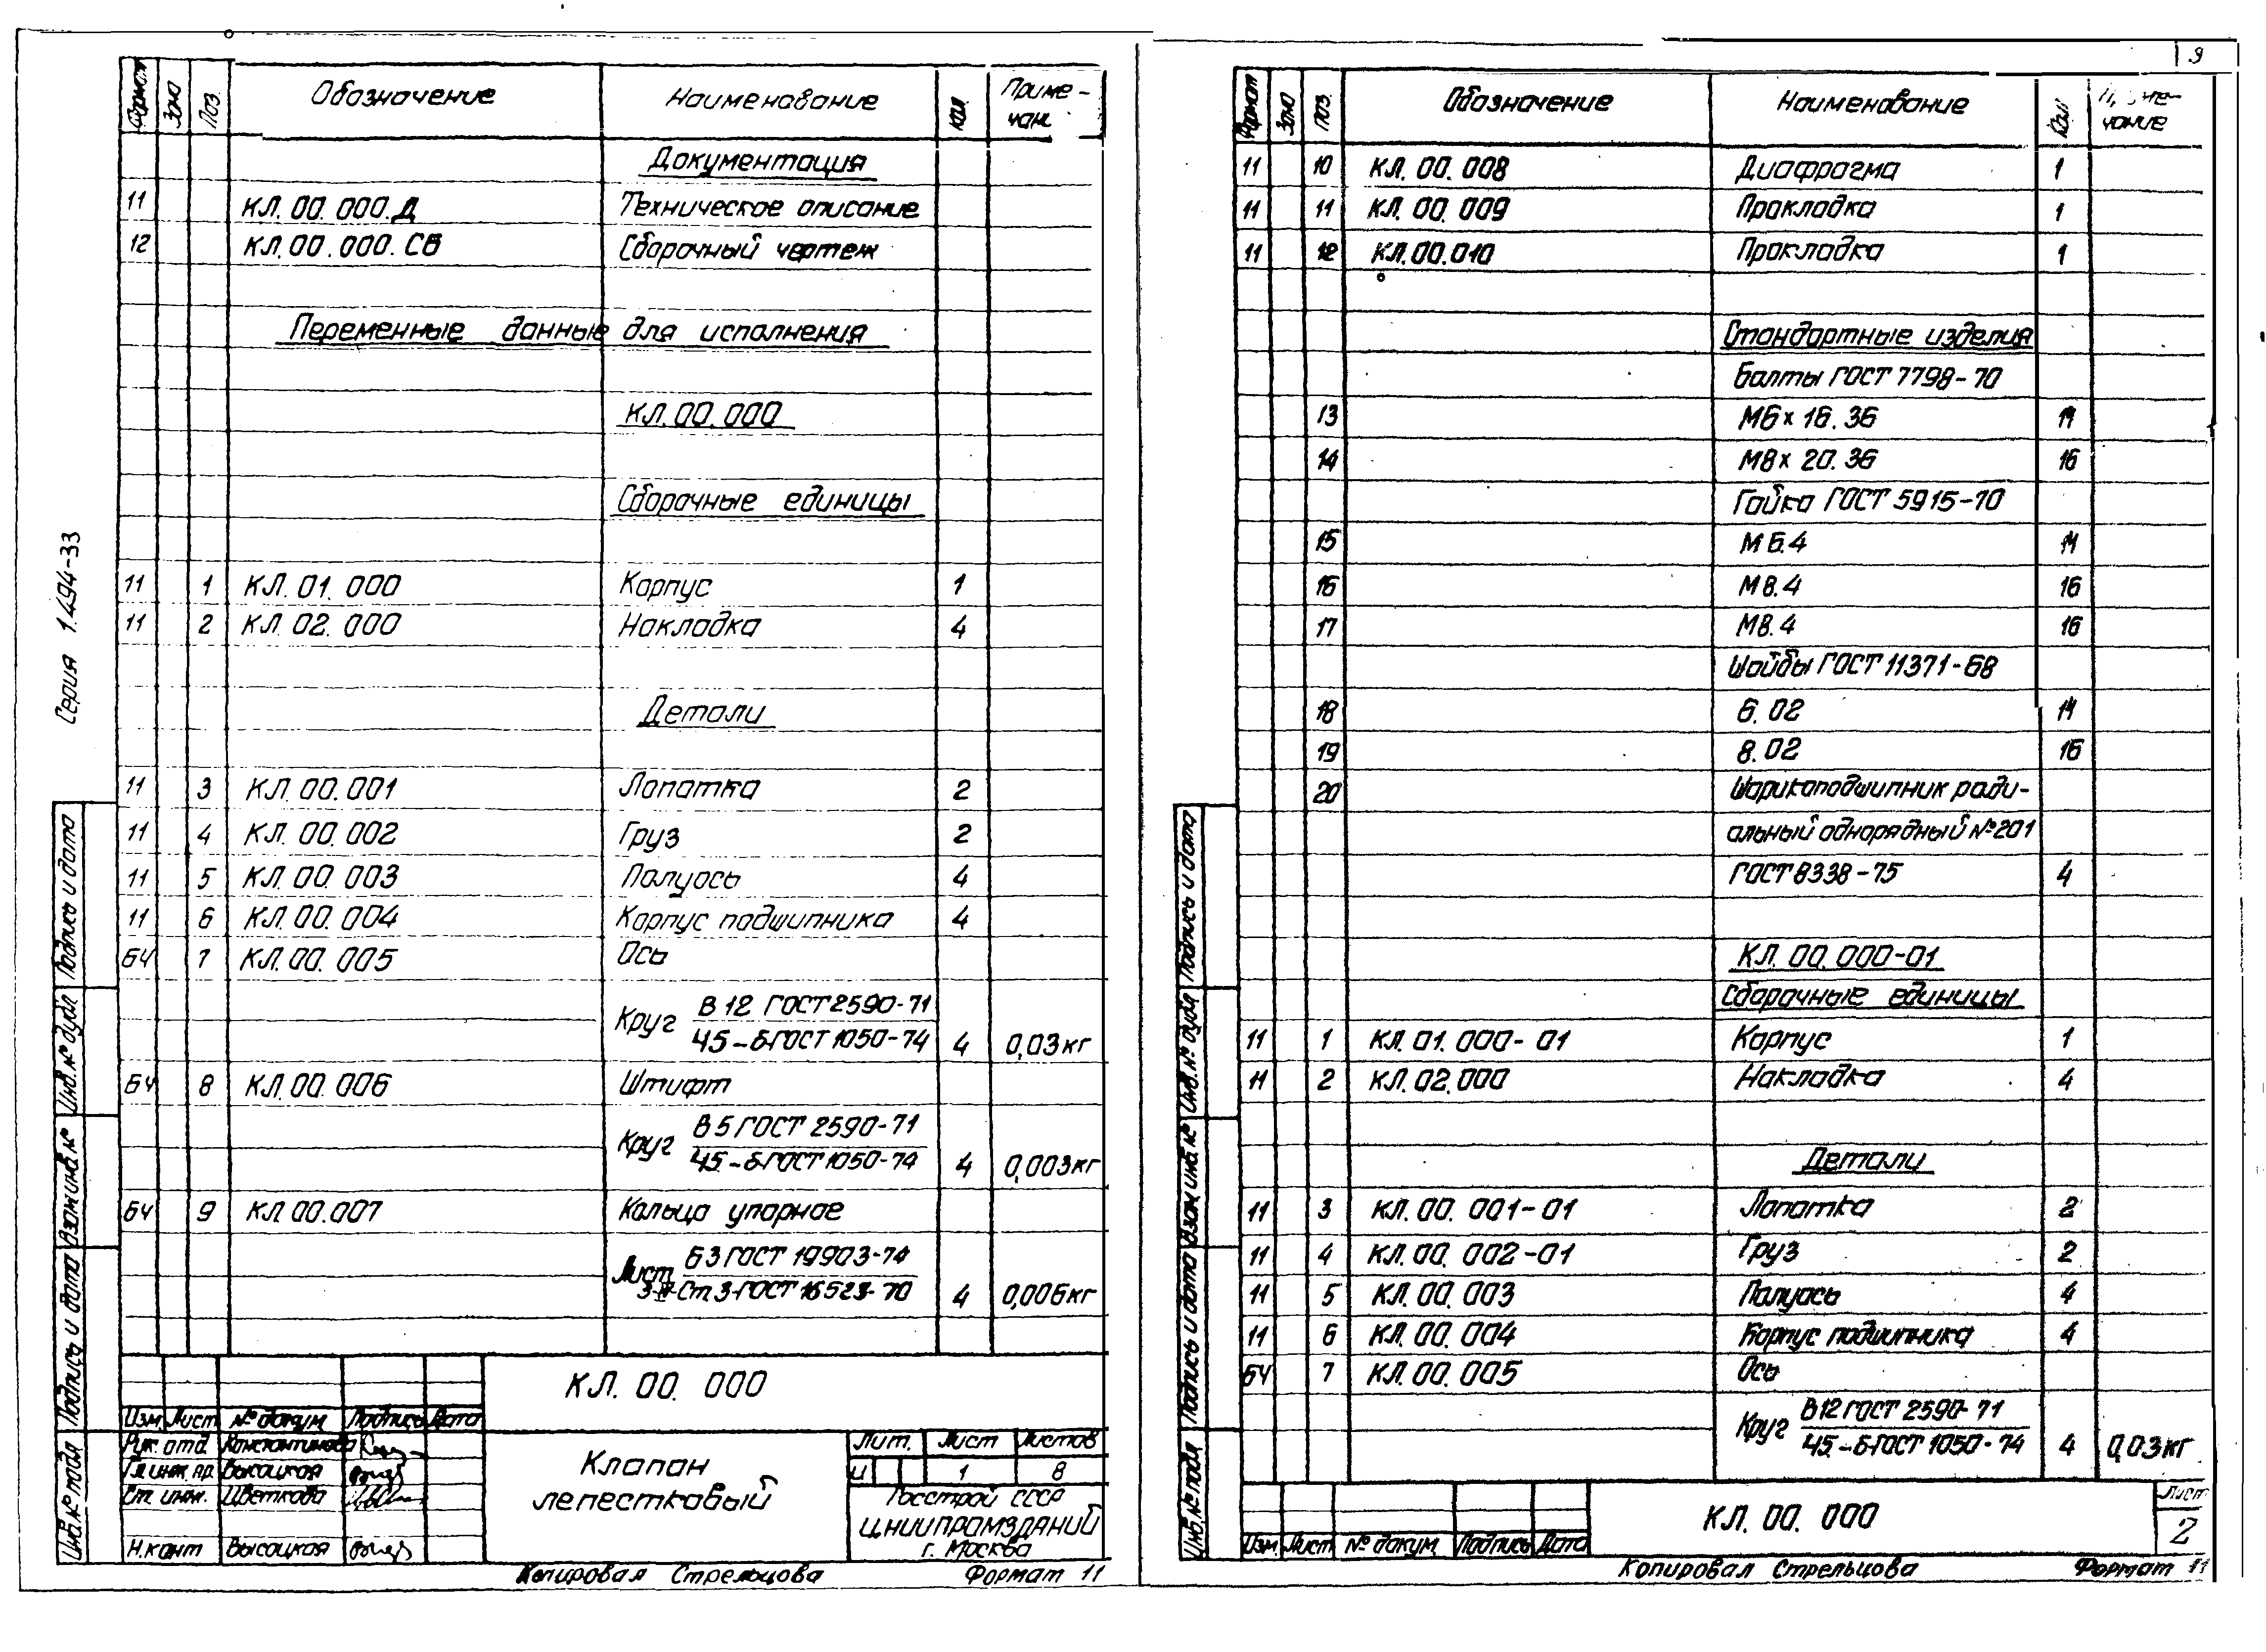 Серия 1.494-33
Формат Зона Поз. Обозначение Наименование Кол Приме-
чан.
Документация
11 КЛ.00.000.Д Техническое описание
12 КЛ.00.000.СБ Сборочный чертеж
Переменные данные для исполнения
КЛ.00.000
Сборочные единицы
11 1 КЛ.01.000 Корпус 1
11 2 КЛ.02.000 Накладка 4
Детали
11 3 КЛ.00.001 Лопатка 2
11 4 КЛ.00.002 Груз 2
11 5 КЛ.00.003 Полуось 4
11 6 КЛ.00.004 Корпус подшипника 4
БЧ 7 КЛ.00.005 Ось
В 12 ГОСТ 2590-71
Круг 45-б-ГОСТ 1050-74 4 0,03кг
БЧ 8 КЛ.00.006 Штифт
В 5 ГОСТ 2590-71
Круг 45-б-ГОСТ 1050-74 4 0,003кг
БЧ 9 КЛ 00.007 Кольцо упорное
Б3 ГОСТ 19903-74
Лист Ст.3-ГОСТ 16523-70 4 0,006кг
Инв.№ подл Подпись и дата Взам.инв.№ Инв.№ дубл Подпись и дата
КЛ.00.000
Изм Лист № докум. Подпись Дата
Рук. отд. Константинова
Гл.инж.пр. Высоцкая
Ст. инж. Цветкова
Н.конт Высоцкая
Клапан
лепестковый
Лит. Лист Листов
И 1 8
Госстрой СССР
ЦНИИПРОМЗДАНИЙ
г. Москва
Копировал Стрельцова Формат 11
9
Формат Зона Поз. Обозначение Наименование Кол
чание
11 10 КЛ.00.008 Диафрагма 1
11 11 КЛ.00.009 Прокладка 1
11 12 КЛ.00.010 Прокладка 1
Стандартные изделия
Болты ГОСТ 7798-70
13 М6×16.36 14
14 М8×20.36 16
Гайка ГОСТ 5915-70
15 М6.4 14
16 М8.4 16
17 М8.4 16
Шайбы ГОСТ 11371-68
18 6.02 14
19 8.02 16
20 Шарикоподшипник ради-
альный однорядный №201
ГОСТ 8338-75 4
КЛ.00.000-01
Сборочные единицы
11 1 КЛ.01.000-01 Корпус 1
11 2 КЛ.02.000 Накладка 4
Детали
11 3 КЛ.00.001-01 Лопатка 2
11 4 КЛ.00.002-01 Груз 2
11 5 КЛ.00.003 Полуось 4
11 6 КЛ.00.004 Корпус подшипника 4
БЧ 7 КЛ.00.005 Ось
В12 ГОСТ 2590-71
Круг 45-б-ГОСТ 1050-74 4 0,03кг
Инв.№ подл Подпись и дата Взам.инв.№ Инв.№ дубл Подпись и дата
КЛ.00.000
Лист
2
Изм. Лист № докум. Подпись Дата
Копировал Стрельцова Формат 11